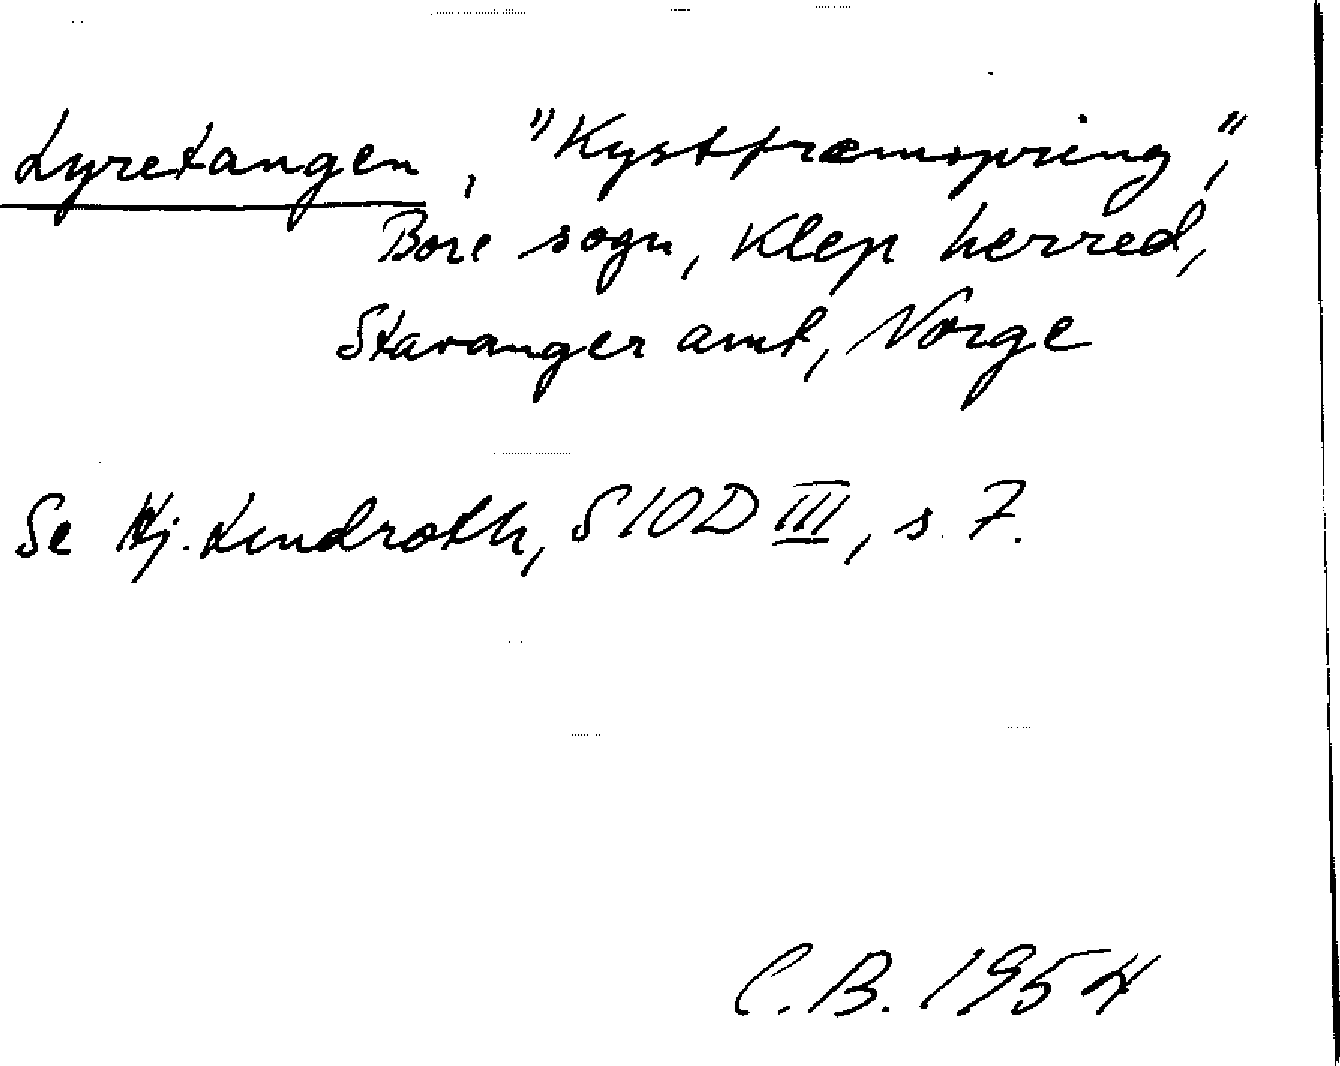 Lyretangen, "Kystfremspring",
Bore sogn, Klep herred,
Stavanger amt, Norge
Se Hj. Lindroth, SIOD III, s. 7.
C.B. 1954